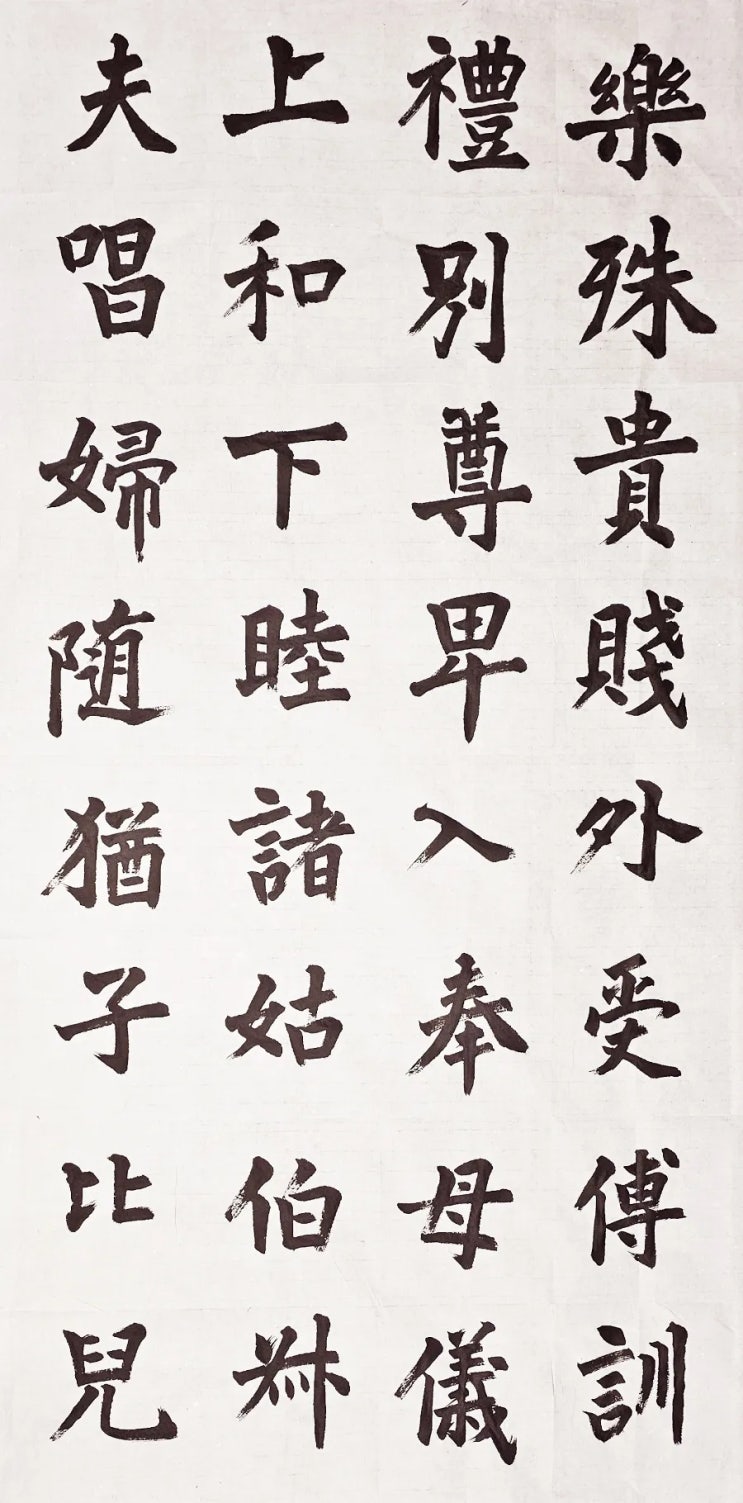 樂殊貴賤外受傅訓
禮別尊卑入奉母儀
上和下睦諸姑伯叔
夫唱婦随猶子比兒